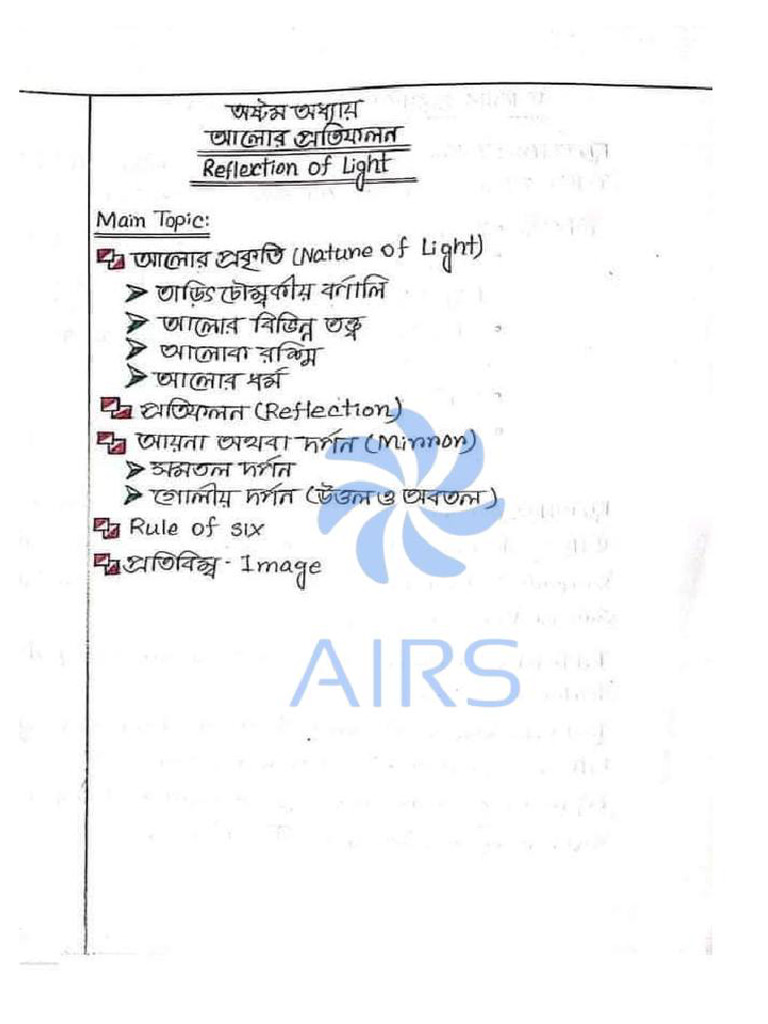 অষ্টম অধ্যায়
আলোর প্রতিফলন
Reflection of Light
Main Topic:
আলোর প্রকৃতি (Nature of Light)
তাড়িৎ চৌম্বকীয় বর্ণালি
আলোর বিভিন্ন তত্ত্ব
আলোক রশ্মি
আলোর ধর্ম
প্রতিফলন (Reflection)
আয়না অথবা দর্পন (Mirror)
সমতল দর্পন
গোলীয় দর্পন (উত্তল ও অবতল)
Rule of six
প্রতিবিম্ব - Image
AIRS